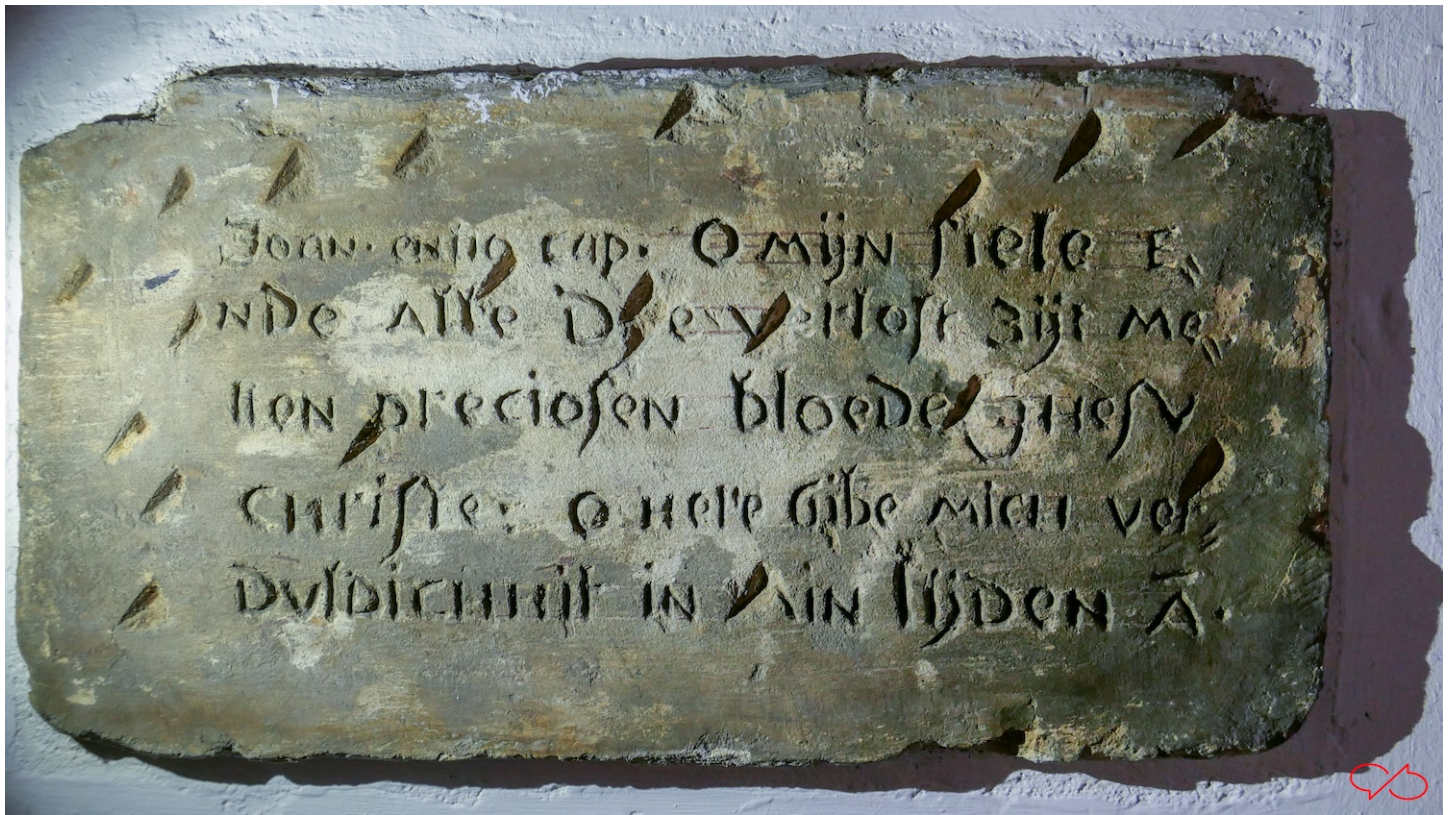 Joan. cap. O mijn siele E„
nde alle Die verlost zijt me„
tten preciosen bloede Jhesv
Christe: O Here Gibe mich ver„
Dvldichhijt in Min lijden Ā.